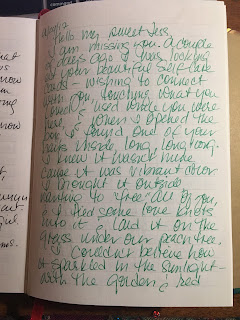 Hello my sweet Jess
I am missing you. A couple
of days ago I was looking
at your beautiful self care
cards - wishing to connect
with you, touching what you
loved & used while you were
here. & when I opened the
box, I found one of your
hairs inside, long, long, long.
I knew it wasn't mine
cause it was vibrant color
I brought it outside
wanting to "free" all of you,
& I tied some love knots
into it & laid it on the
grass under our peach tree.
I couldn't believe how
it sparkled in the sunlight -
with the golden & red
know
know